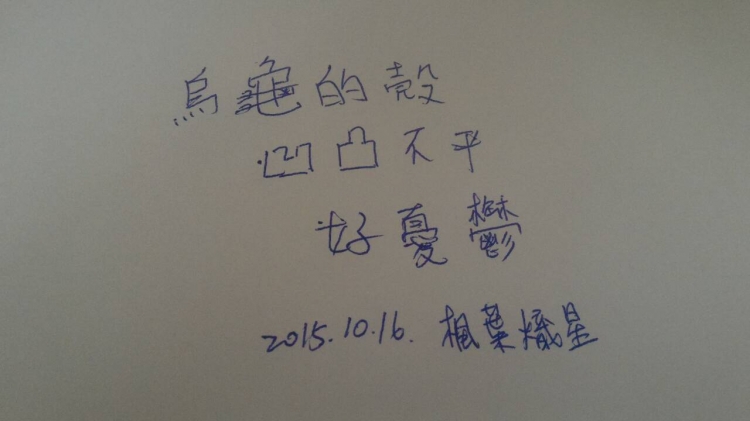 烏龜的殼
凹凸不平
好憂鬱
2015.10.16. 楓葉熾星